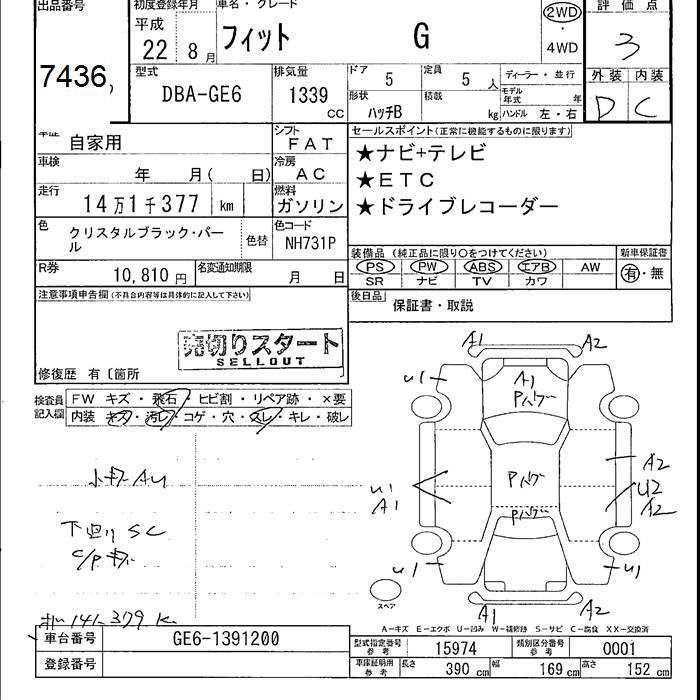 出品番号 初度登録年月 車名・グレード 2WD 評価点
平成
22 8月 フィット G ・ 3
4WD
7436
型式 排気量 ドア 定員 ディーラー・並行 外装 内装
DBA-GE6 1339 cc 5 5人 モデル年式 年 D C
形状 ハッチB 積載 kg ハンドル 左・右
車歴 自家用 シフト FAT セールスポイント(正常に機能するものに限ります)
車検 年 月( 日) 冷房 AC ★ナビ+テレビ
★ETC
走行 14万1千377 km 燃料 ガソリン ★ドライブレコーダー
色 クリスタルブラック・パール 色替 色コード NH731P
装備品(純正品に限り○をつけてください) 新車保証書
R券 10,810円 名変通知期限 月 日 PS PW ABS エアB AW 有・無
SR ナビ TV カワ
注意事項申告欄(不具合内容等は具体的に記入して下さい) 後日品 保証書・取説
売切りスタート
SELLOUT
修復歴 有〔箇所
検査員記入欄 FW キズ・飛石・ヒビ割・リペア跡・×要
内装 キズ・汚レ・コゲ・穴・スレ・キレ・破レ
A1 A2
U1 A1
Pハゲ
小キズ AU Pハゲ A2
U1 U2
A1 A2
Pハゲ
下廻り SC
C/P キズ
U1 U1
スペア A1 A2
141,379 K
A-キズ E-エクボ U-凹み W-補修跡 S-サビ C-腐食 XX-交換済
車台番号 GE6-1391200 型式指定番号 参考 15974 類別区分番号 参考 0001
登録番号 車庫証明用 参考 長さ 390 cm 幅 169 cm 高さ 152 cm